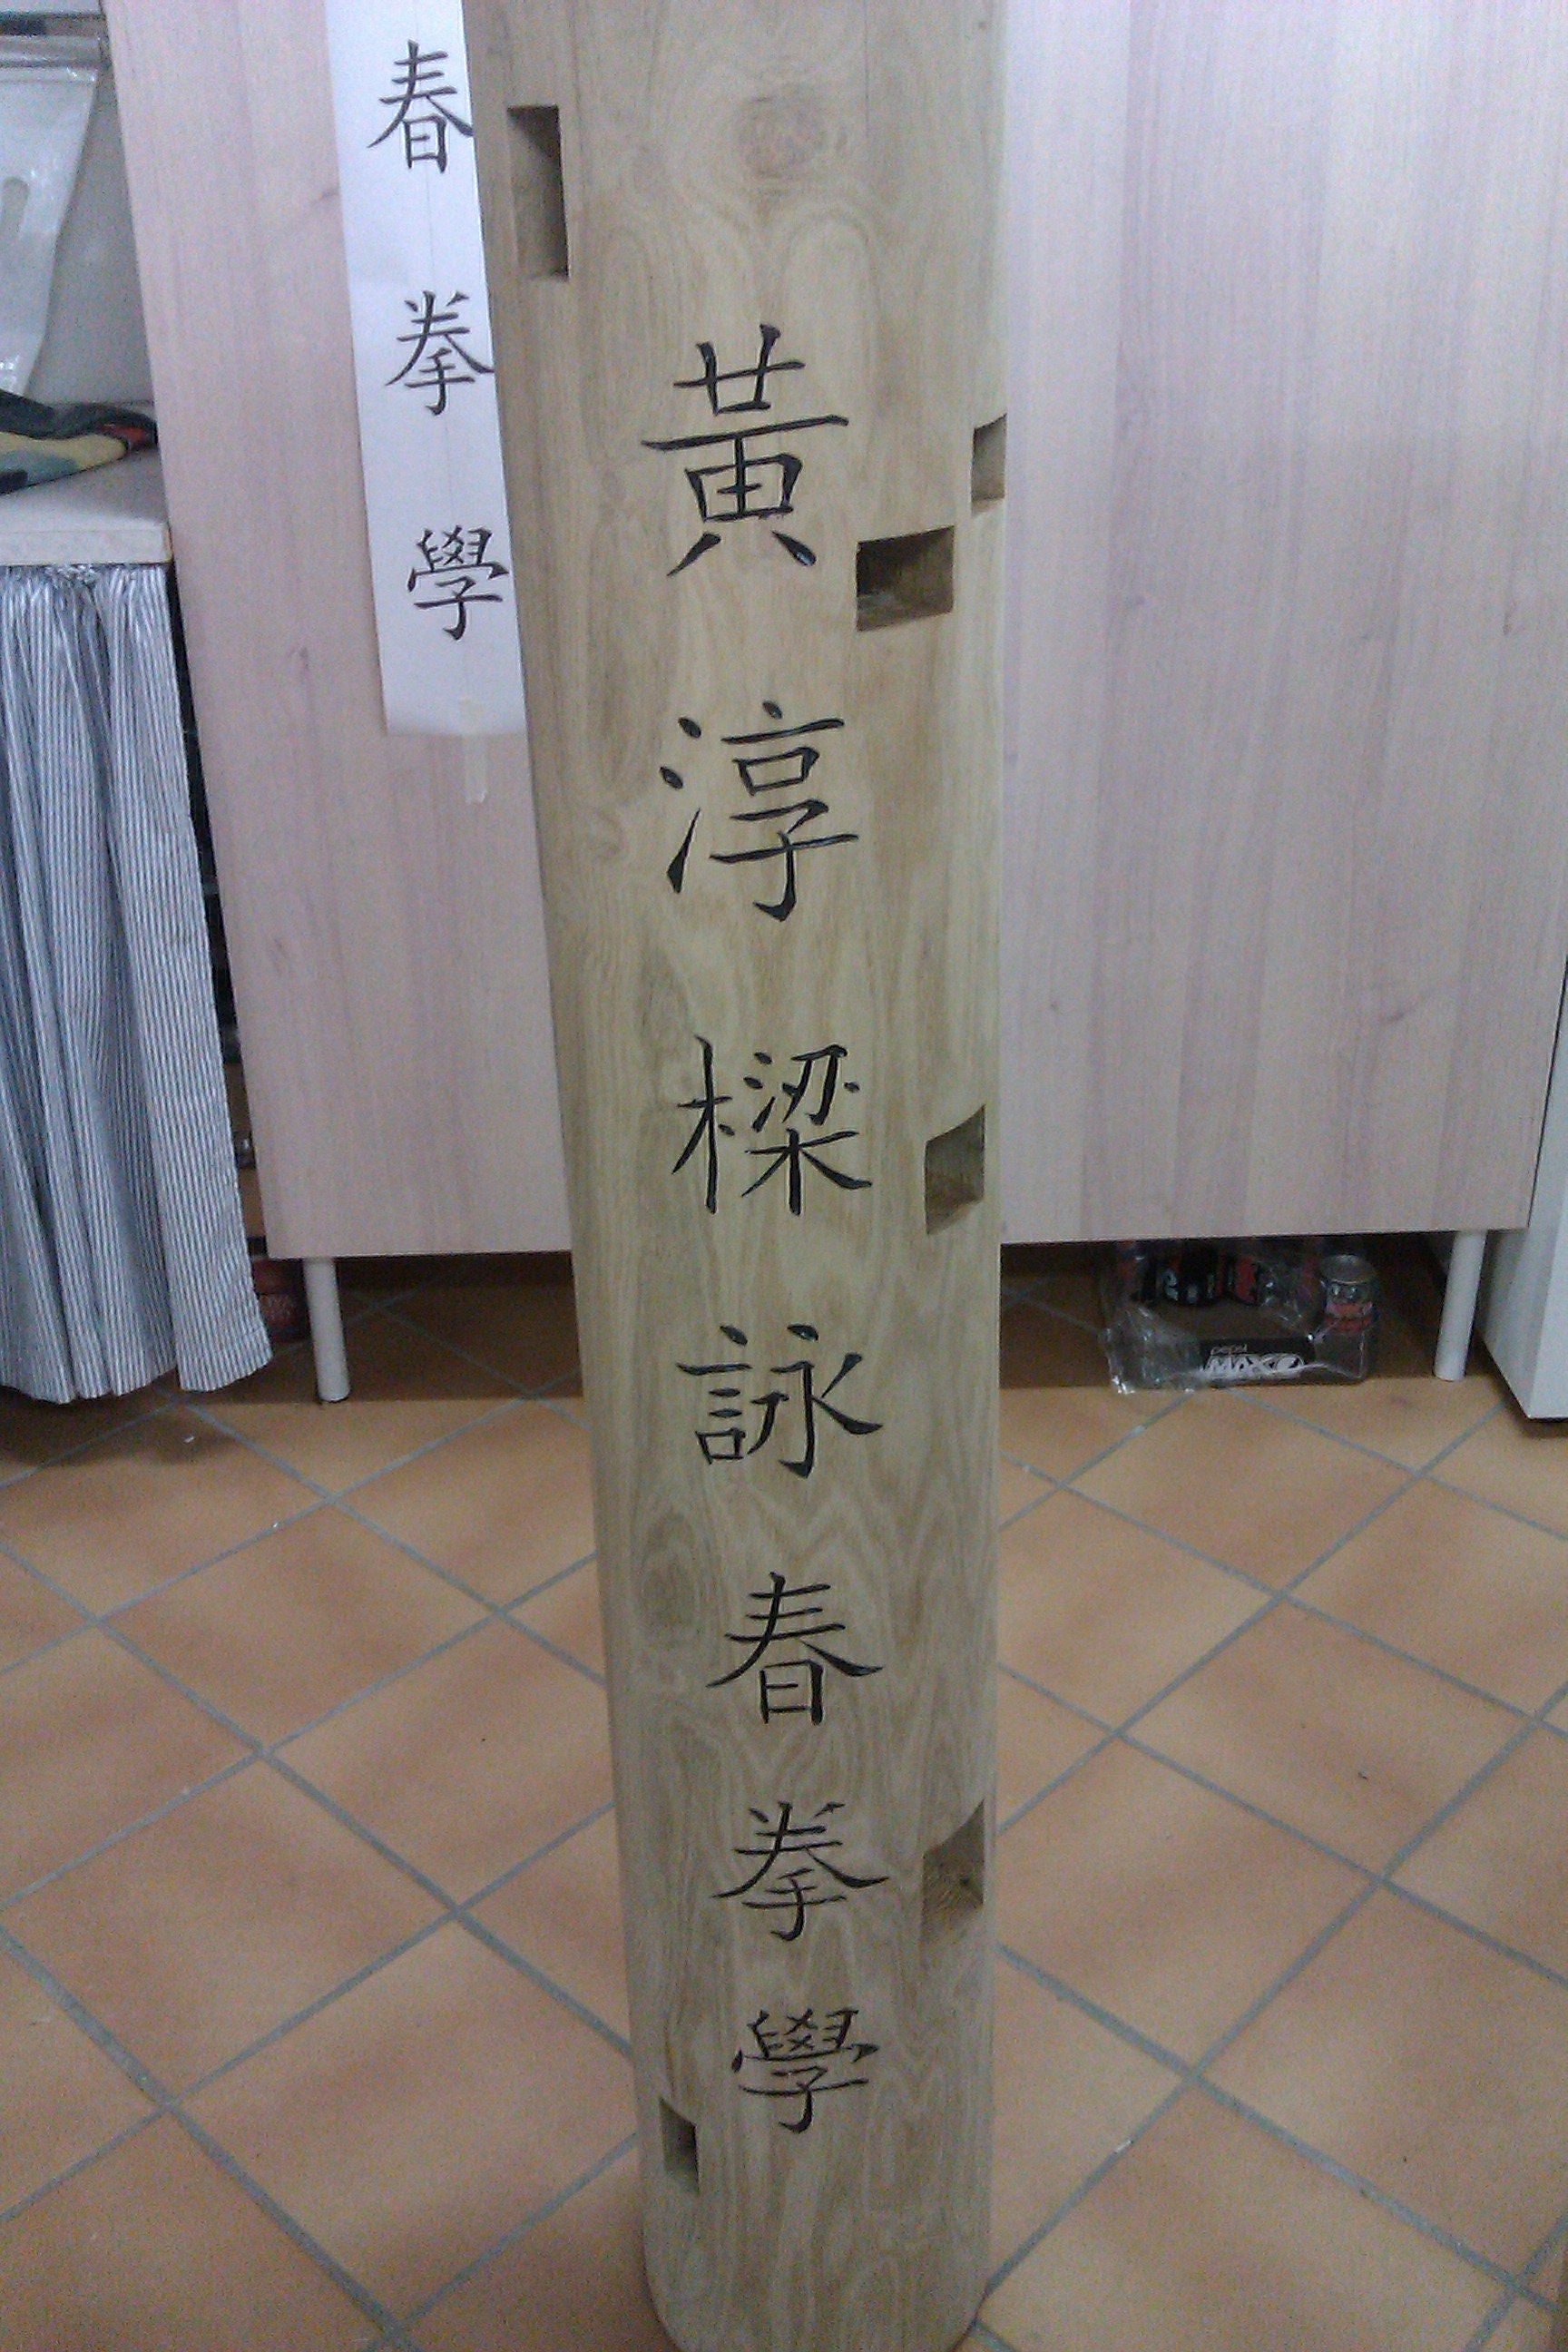 黃淳樑詠春拳學
春拳學
pepsi
MAX